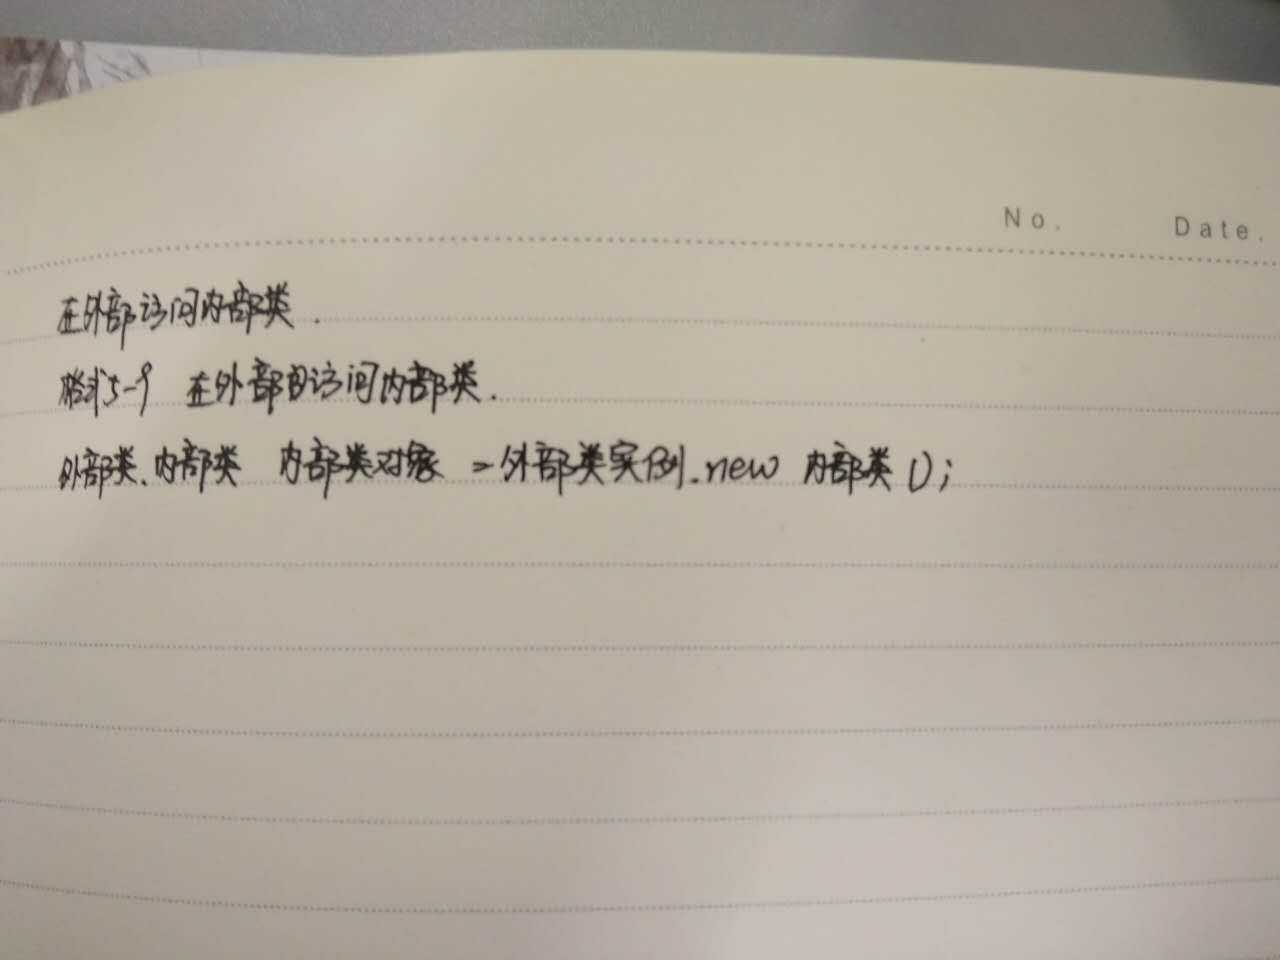 No. Date.
在外部访问内部类.
格式5-9 在外部访问内部类.
外部类.内部类 内部类对象 = 外部类实例.new 内部类();